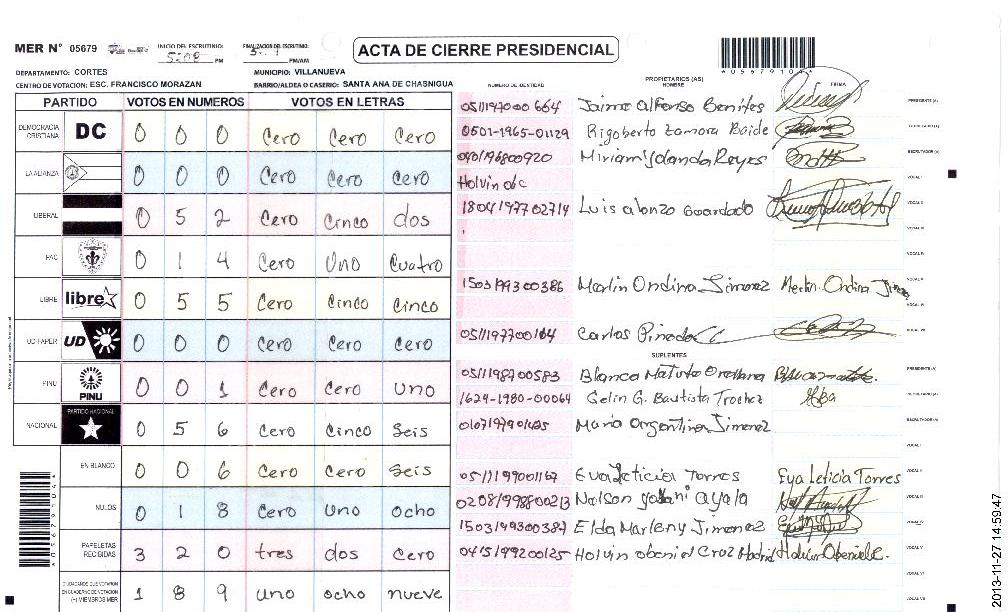 MER N° 05679
INICIO DEL ESCRUTINIO: 5:08 PM
FINALIZACION DEL ESCRUTINIO: PM/AM
ACTA DE CIERRE PRESIDENCIAL
DEPARTAMENTO: CORTES
MUNICIPIO: VILLANUEVA
CENTRO DE VOTACION: ESC. FRANCISCO MORAZAN
BARRIO/ALDEA O CASERIO: SANTA ANA DE CHASNIGUA
NUMERO DE IDENTIDAD
PROPIETARIOS (AS)
NOMBRE
FIRMA
PARTIDO VOTOS EN NUMEROS VOTOS EN LETRAS
DEMOCRACIA CRISTIANA DC 0 0 0 Cero Cero Cero
LA ALIANZA 0 0 0 Cero Cero Cero
LIBERAL 0 5 2 Cero Cinco dos
PAC 0 1 4 Cero Uno Cuatro
LIBRE libre 0 5 5 Cero Cinco Cinco
UD-FAPER UD 0 0 0 Cero Cero Cero
PINU PINU 0 0 1 Cero Cero Uno
NACIONAL PARTIDO NACIONAL 0 5 6 Cero Cinco Seis
EN BLANCO 0 0 6 Cero Cero Seis
NULOS 0 1 8 Cero Uno ocho
PAPELETAS RECIBIDAS 3 2 0 tres dos Cero
CIUDADANOS QUE VOTARON EN CUADERNO DE VOTACION (+) MIEMBROS MER 1 8 9 uno ocho nueve
0511197000664 Jaime Alfonso Benites PRESIDENTE (A)
0501-1965-01129 Rigoberto Zamora Baide SECRETARIO (A)
Miriam Yolanda Reyes ESCRUTADOR (A)
Holvin obc VOCAL I
1804197702714 Luis alonzo Guardado VOCAL II
VOCAL III
VOCAL IV
1503199300386 Merlin Ondina Jimenez Merlin Ondina VOCAL V
VOCAL VI
0511197700164 Carlos Pineda VOCAL VII
SUPLENTES
0511198700583 Blanca Matute Orellana PRESIDENTE (A)
1624-1980-00064 Gelin G. Bautista Trochez SECRETARIO (A)
Maria Argentina Jimenez ESCRUTADOR (A)
VOCAL I
0511199001167 Eva Leticia Torres Eva Leticia Torres VOCAL II
0208199800213 Nelson ayala VOCAL III
1503199300387 Elda Marleny Jimenez VOCAL IV
0415199200125 Holvin obeniel Cruz Madrid VOCAL V
VOCAL VI
VOCAL VII
2013-11-27 14:59:47